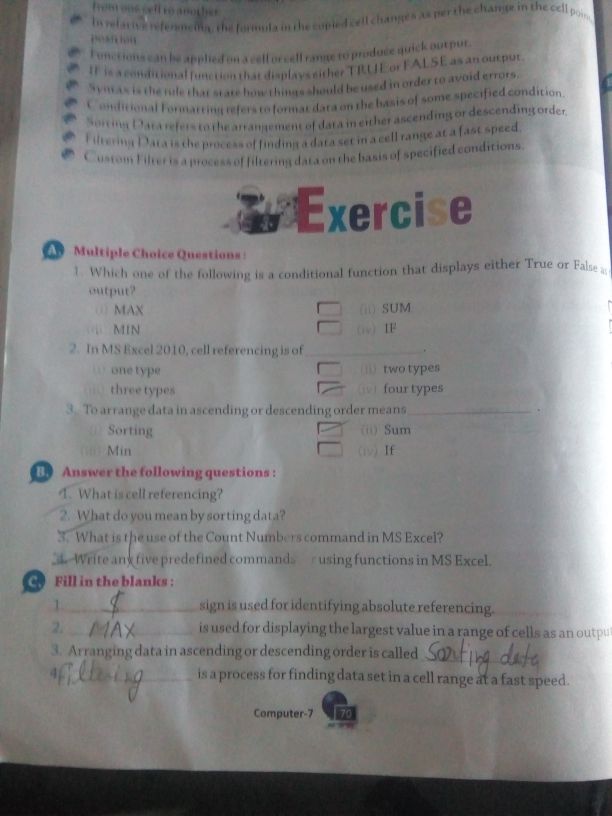 from one cell to another
In relative referencing, the formula in the copied cell changes as per the change in the cell
position
Functions can be applied on a cell or cell range to produce quick output.
IF is a conditional function that displays either TRUE or FALSE as an output.
Syntax is the rule that state how things should be used in order to avoid errors.
Conditional Formatting refers to format data on the basis of some specified condition.
Sorting Data refers to the arrangement of data in either ascending or descending order.
Filtering Data is the process of finding a data set in a cell range at a fast speed.
Custom Filter is a process of filtering data on the basis of specified conditions.
Exercise
A. Multiple Choice Questions :
1. Which one of the following is a conditional function that displays either True or False as
output?
(i) MAX (ii) SUM
(iii) MIN (iv) IF
2. In MS Excel 2010, cell referencing is of ____________.
(i) one type (ii) two types
(iii) three types (iv) four types
3. To arrange data in ascending or descending order means ____________.
(i) Sorting (ii) Sum
(iii) Min (iv) If
B. Answer the following questions :
1. What is cell referencing?
2. What do you mean by sorting data?
3. What is the use of the Count Numbers command in MS Excel?
4. Write any five predefined commands using functions in MS Excel.
C. Fill in the blanks :
1. $ sign is used for identifying absolute referencing.
2. MAX is used for displaying the largest value in a range of cells as an outpu
3. Arranging data in ascending or descending order is called Sorting data
4. Filtering is a process for finding data set in a cell range at a fast speed.
Computer-7 70